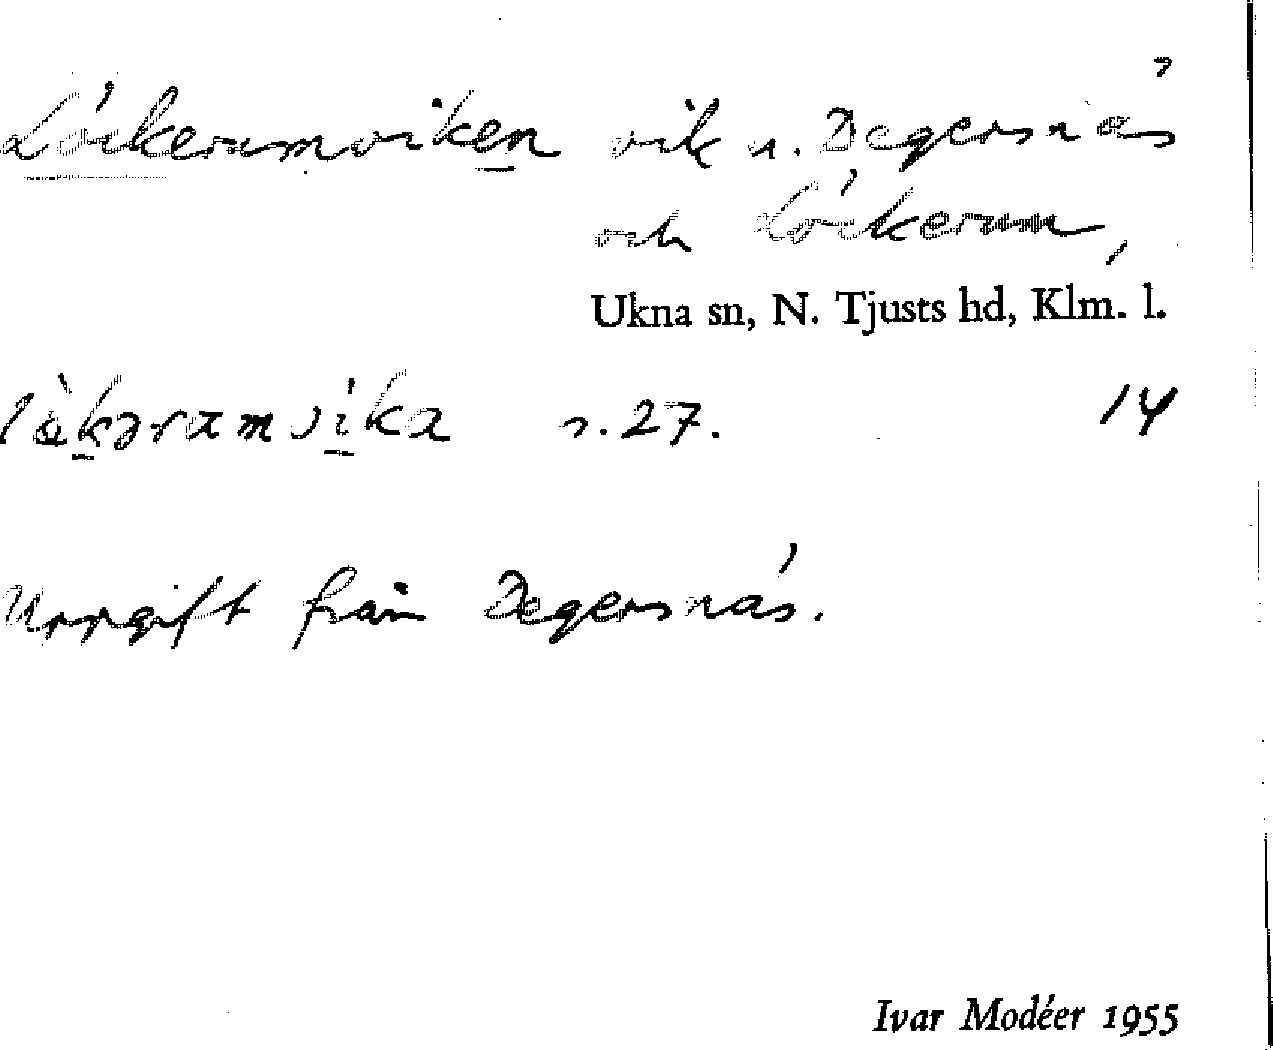 Löckerumviken vik n. Degersnäs
och Löckerum,
Ukna sn, N. Tjusts hd, Klm. l.
s. 27. 14
Uppgift från Degersnäs.
Ivar Modéer 1955